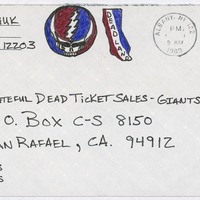 IUK
12203
DEAD LAND
ALBANY, NY 122
PM
9 MAY
1989
TEFUL DEAD TICKET SALES - GIANTS
O. BOX C-S 8150
N RAFAEL, CA. 94912
S
S